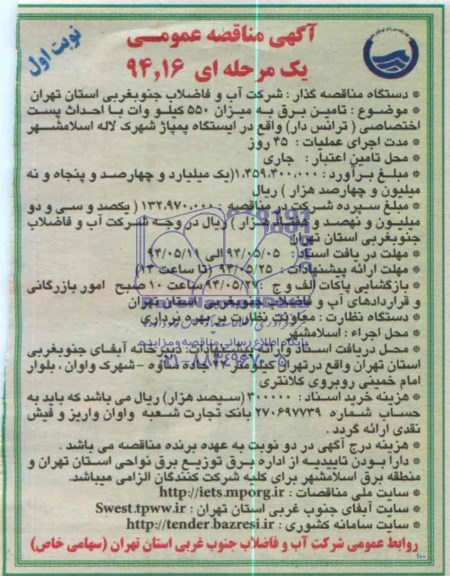 آگهی مناقضه عمومی
یک مرحله ای ۹۴,۱۶
نوبت اول
* دستگاه مناقصه گذار : شرکت آب و فاضلاب جنوبغربی استان تهران
* موضوع : تامین برق به میزان ۵۵۰ کیلو وات با احداث پست
اختصاصی ( ترانس دار) واقع در ایستگاه پمپاژ شهرک لاله اسلامشهر
* مدت اجرای عملیات : ۴۵ روز
* محل تامین اعتبار : جاری
* مبلغ برآورد : ۱,۴۵۹,۴۰۰,۰۰۰(یک میلیارد و چهارصد و پنجاه و نه
میلیون و چهارصد هزار ) ریال
* مبلغ سپرده شرکت در مناقصه : ۱۳۲,۹۷۰,۰۰۰ ( یکصد و سی و دو
میلیون و نهصد و هفتاد هزار ) ریال در وجه شرکت آب و فاضلاب
جنوبغربی استان تهران
* مهلت دریافت اسناد : ۹۴/۰۵/۰۵ الی ۹۴/۰۵/۱۱
* مهلت ارائه پیشنهادات : ۹۴/۰۵/۲۵ (تا ساعت ۱۳)
* بازگشایی پاکات الف و ج : ۹۴/۰۵/۲۷ ساعت ۱۰ صبح امور بازرگانی
و قراردادهای آب و فاضلاب جنوبغربی استان تهران
* دستگاه نظارت : معاونت نظارت بر بهره برداری
* محل اجراء : اسلامشهر
پایگاه اطلاع رسانی مناقصه و مزایده
* محل دریافت اسناد وارائه پیشنهادات: دبیرخانه آبفای جنوبغربی
استان تهران واقع درتهران کیلومتر جاده ساوه - شهرک واوان ، بلوار
امام خمینی روبروی کلانتری
* هزینه خرید اسناد : ۳۰۰۰۰۰ (سیصد هزار) ریال می باشد که باید به
حساب شماره ۲۷۰۶۹۷۷۳۹ بانک تجارت شعبه واوان واریز و فیش
نقدی ارائه گردد .
* هزینه درج آگهی در دو نوبت به عهده برنده مناقصه می باشد .
* دارا بودن تاییدیه از اداره برق توزیع برق نواحی استان تهران و
منطقه برق اسلامشهر برای کلیه شرکت کنندگان الزامی میباشد.
* سایت ملی مناقصات : http://iets.mporg.ir
* سایت آبفای جنوب غربی استان تهران : Swest.tpww.ir
* سایت سامانه کشوری : http://tender.bazresi.ir
روابط عمومی شرکت آب و فاضلاب جنوب غربی استان تهران (سهامی خاص)